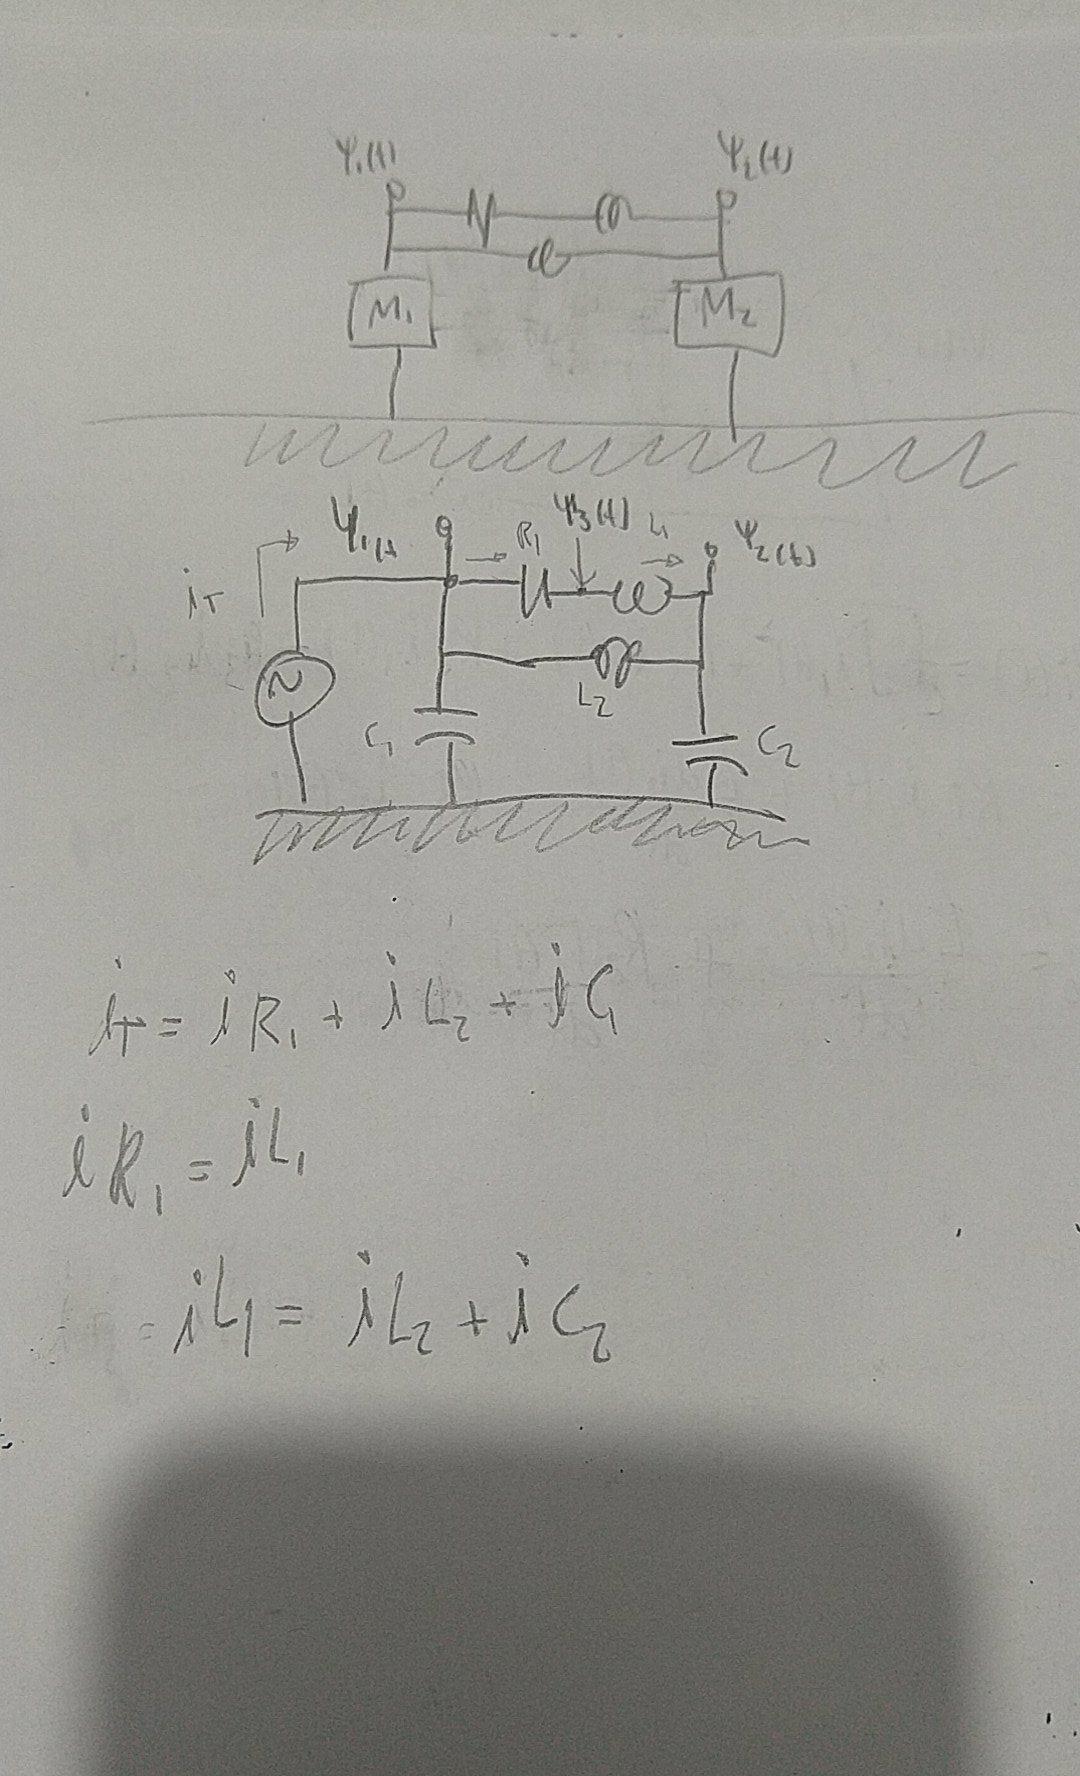 Ψ₁(t) Ψ₂(t)
M₁ M₂
Ψ₁(t Ψ₃(t) Ψ₂(t)
R₁ L₁
i_T
L₂
C₁ C₂
i_T = iR₁ + iL₂ + iC₁
iR₁ = iL₁
= iL₁ = iL₂ + iC₂